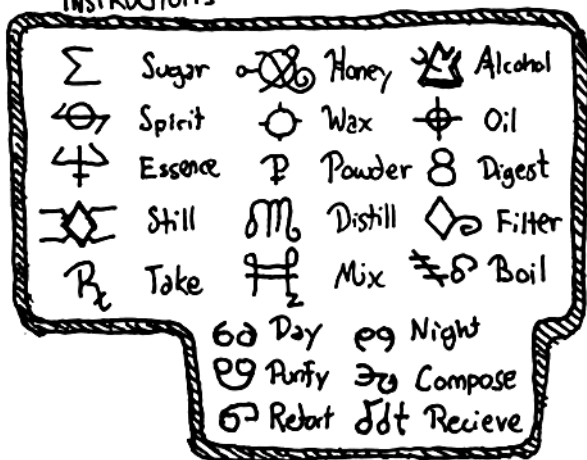 INSTRUCTIONS
Sugar Honey Alcohol
Spirit Wax Oil
Essence Powder Digest
Still Distill Filter
Take Mix Boil
Day Night
Purify Compose
Retort Recieve